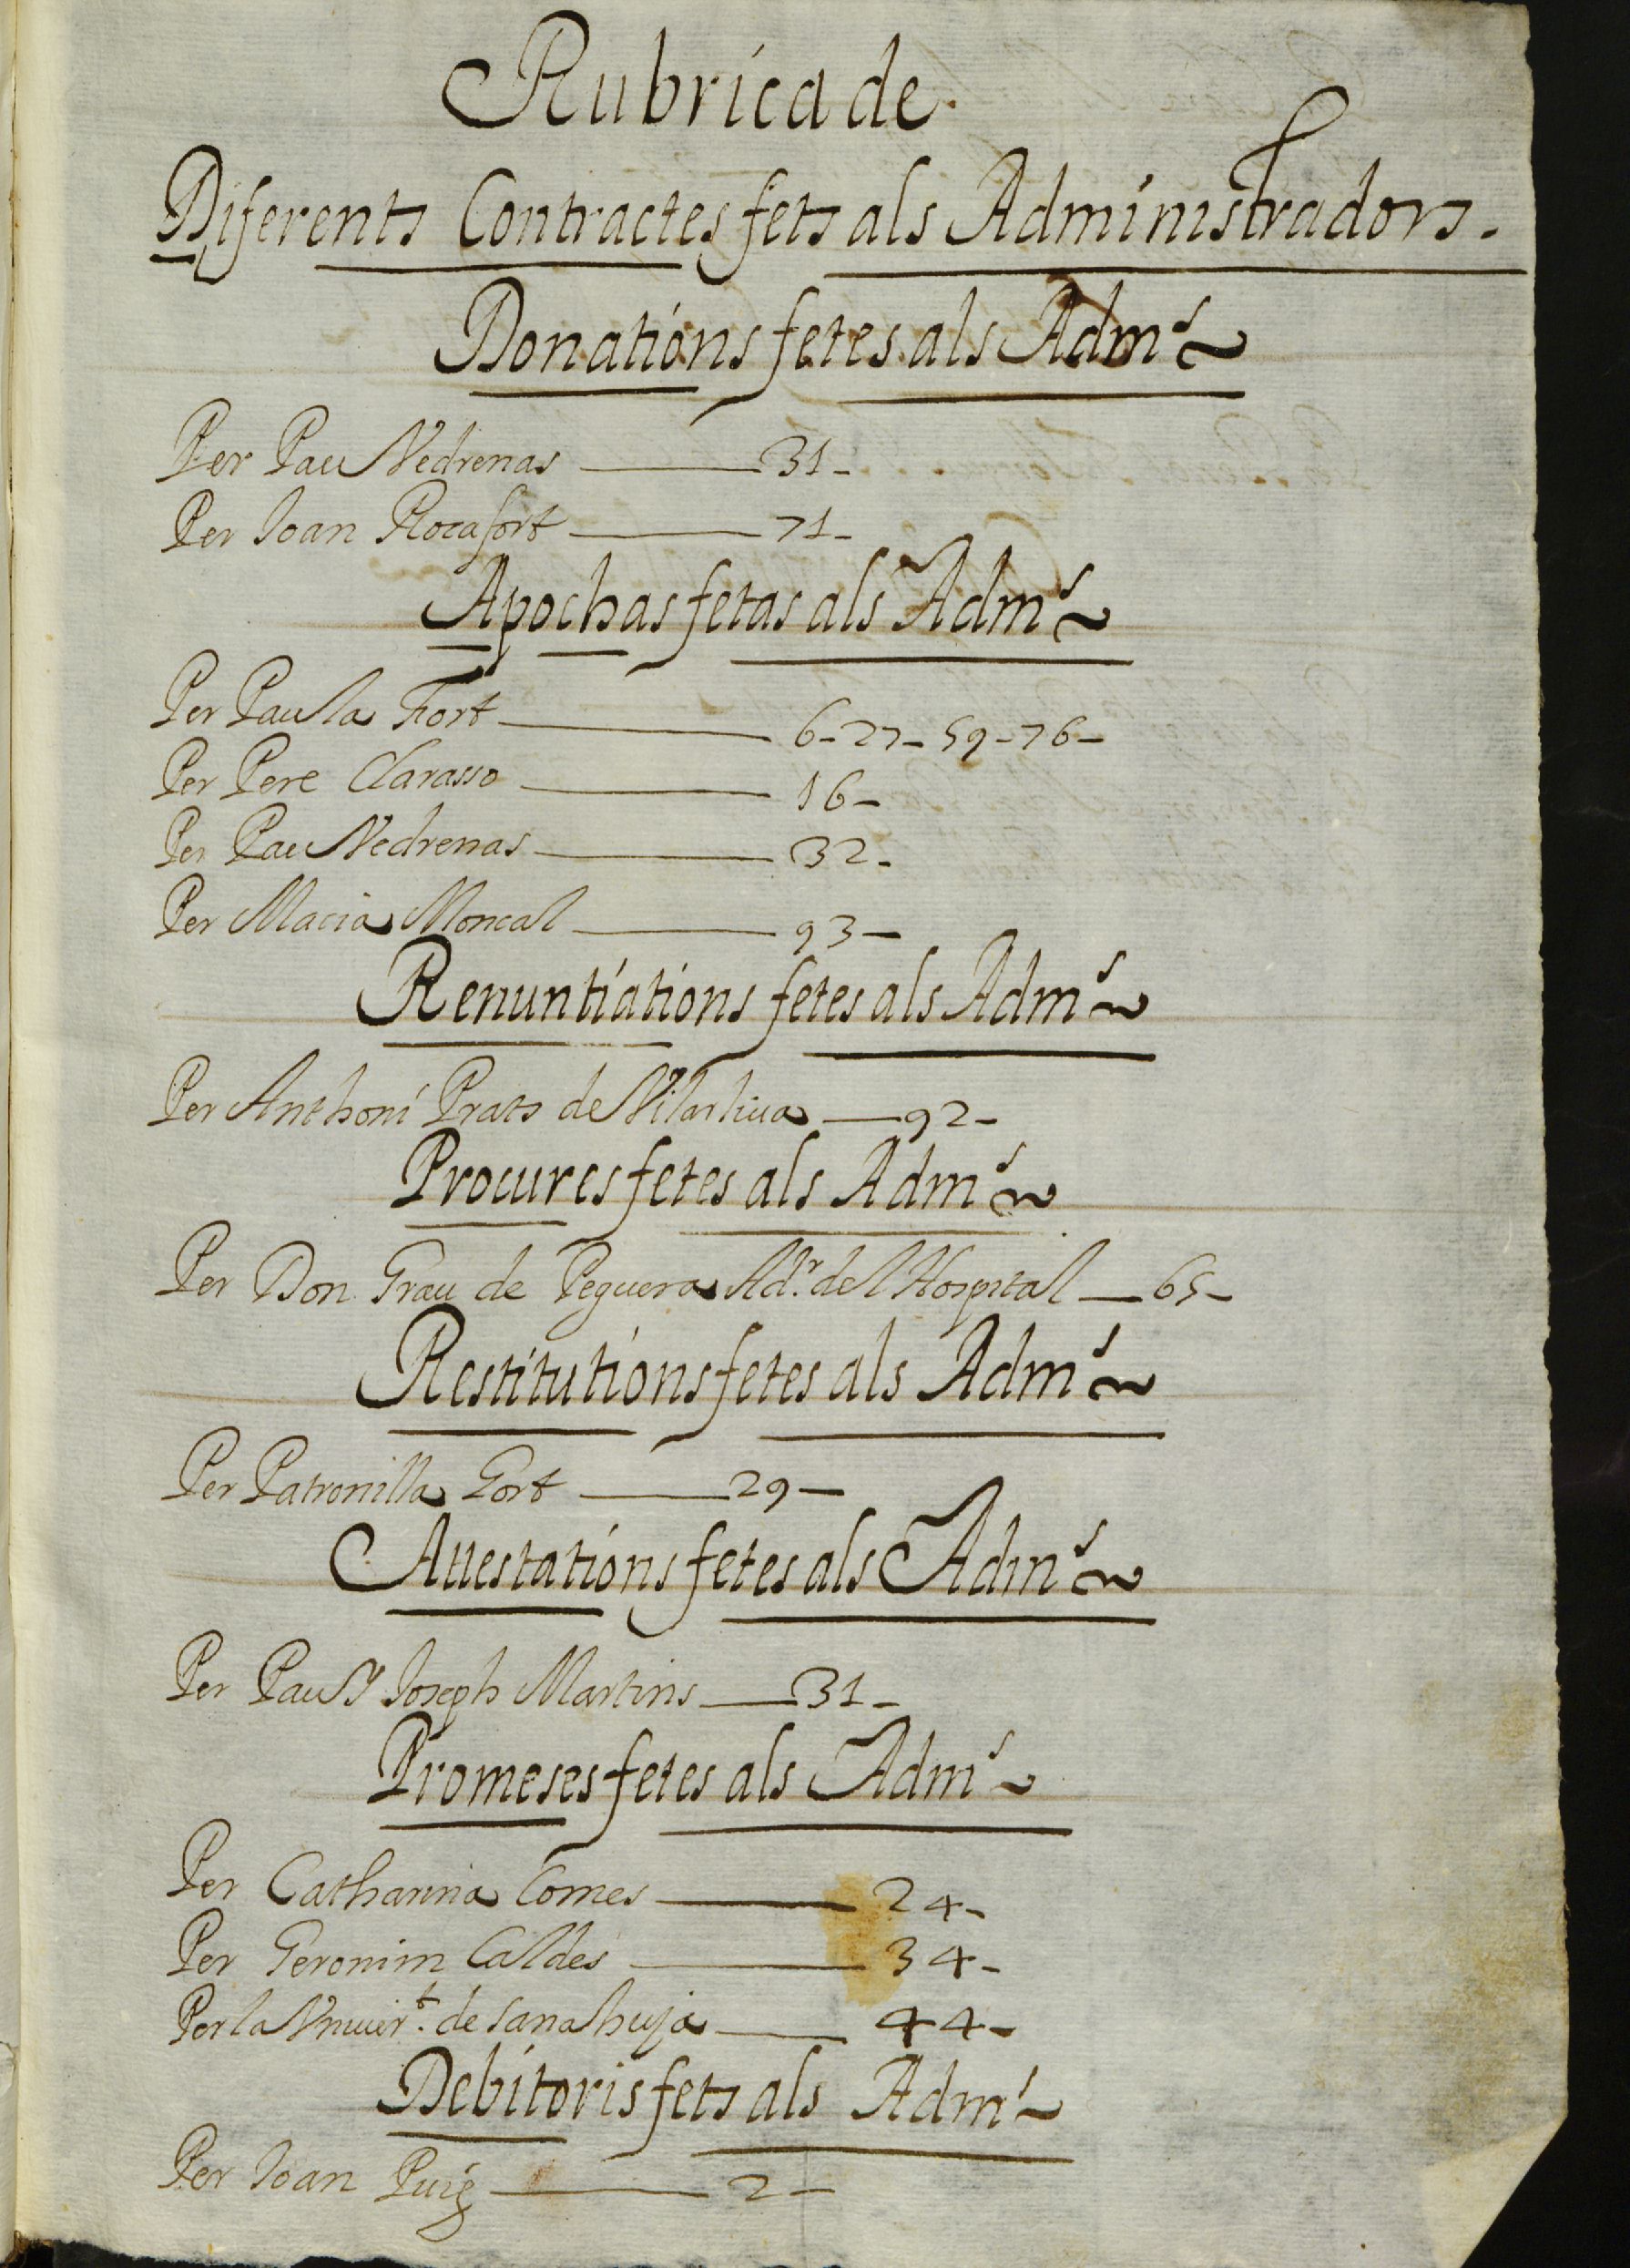 Rubrica de.
Diferents Contractes fets als Administradors.
Donations fetes als Adm.rs
Per Pau Vedrenas — 31-
Per Joan Rocafort — 71-
Apochas fetas als Adm.rs
Per Paula Fort — 6-27-59-76-
Per Pere Clarasso — 16-
Per Pau Vedrenas — 32-
Per Macia Moncal — 93-
Renuntiations fetes als Adm.rs
Per Anthoni Prats de — 92-
Procures fetes als Adm.rs
Per Don Grau de Peguera Ad.r del Hospital — 65-
Restitutions fetes als Adm.rs
Per Patronilla Gort — 29-
Attestations fetes als Adm.rs
Per Pau Y Joseph Martins — 31-
Promeses fetes als Adm.rs
Per Catharina Comes — 24-
Per Geronim Caldes — 34-
Per la Vniuer.t de Sanahuja — 44-
Debitoris fets als Adm.rs
Per Joan Puig — 2-